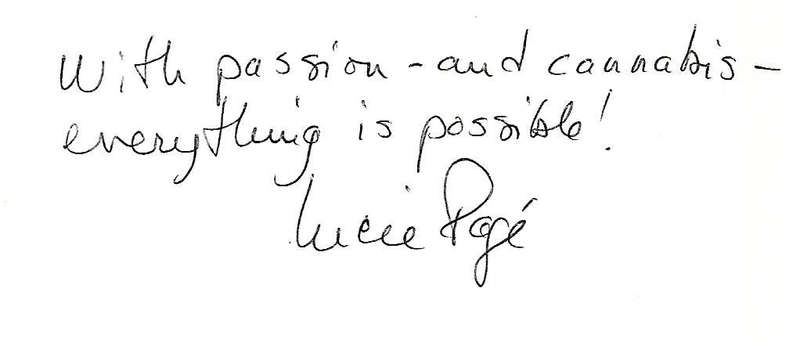 With passion - and cannabis -
everything is possible!
Lucie Pagé